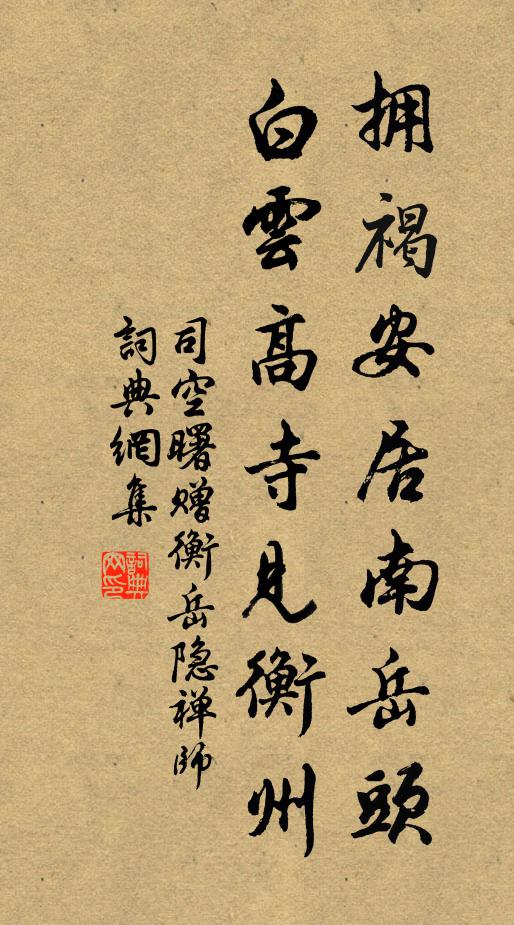 拥褐安居南岳頭
白雲高寺見衡州
司空曙赠衡岳隐禅師
詞典網集
詞典網印